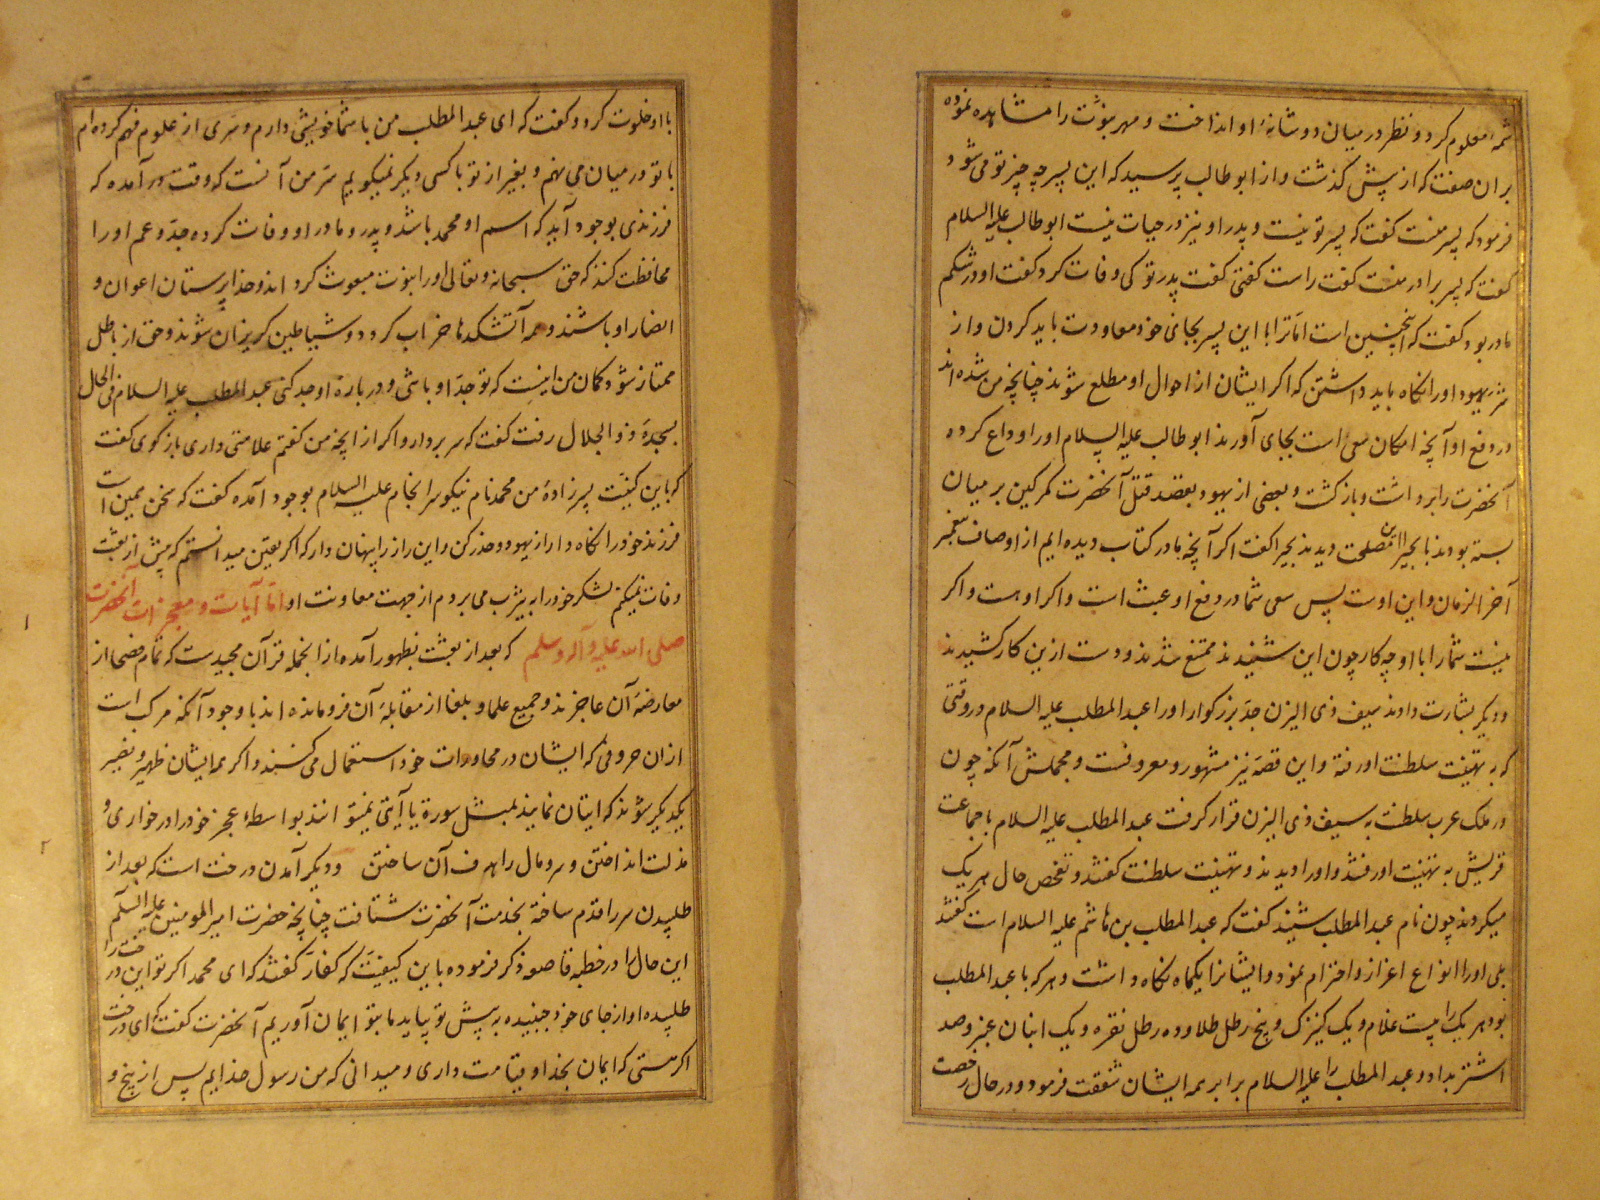 شمه معلوم کرد و نظر در میان دو شانهٔ او انداخت و مهر نبوّت را مشاهده نموده
بران صفت که از پیش گذشت و از ابو طالب پرسید که این پسر چه چیز تو می شود
فرمود که پسر منست گفت که پسر تو نیست و پدر او نیز در حیات نیست ابو طالب علیه السلام
گفت که پسر برادر منست گفت راست گفتی گفت پدر تو کی وفات کرد گفت او در شکم
مادر بود گفت که اینچنین است اما ترا با این پسر بجای خود معاودت باید کردن و از
شر یهود او را نگاه باید داشتن که اگر ایشان از احوال او مطلع شوند چنانچه من شده ام
در دفع او آنچه امکان سعی است بجای آورند ابو طالب علیه السلام او را وداع کرده
آنحضرت را برداشت و بازگشت و بعضی از یهود بقصد قتل آنحضرت کمر کین بر میان
بسته بودند با بحیرا این مصلحت دیدند بحیرا گفت اگر آنچه ما در کتاب دیده ایم از اوصاف پیغمبر
آخر الزمان و این اوست پس سعی شما در دفع او عبث است و اگر اوست و اگر
نیست شما را با او چه کار چون این شنیدند ممتنع شدند و دست ازین کار کشیدند
و دیگر بشارت دادند سیف ذی الیزن جدّ بزرگوار او را عبد المطلب علیه السلام در وقتی
که به تهنیت سلطنت او رفته و این قصّه نیز مشهور و معروفست و مجملش آنکه چون
در ملک عرب سلطنت به سیف ذی الیزن قرار گرفت عبد المطلب علیه السلام با جماعت
قریش به تهنیت او رفتند و او را دیدند و تهنیت سلطنت گفتند و تفحص حال هر یک
میکردند چون نام عبد المطلب شنید گفت که عبد المطلب بن هاشم علیه السلام است گفتند
بلی او را انواع اعزاز و احترام نمود و ایشانرا یکماه نگاه داشت و هر که با عبد المطلب
بود هر یک را بیست غلام و یک کنیزک و پنج رطل طلا و ده رطل نقره و یک انبان عنبر و صد
اشتر بداد و عبد المطلب را علیه السلام برابر همه ایشان شفقت فرمود و در حال رخصت
با او خلوت کرد و گفت که ای عبد المطلب من با شما خویشی دارم و سّری از علوم فهم کرده ام
با تو در میان می نهم و بغیر از تو با کسی دیگر نمیگویم سرّ من آنست که وقت در آمده که
فرزندی بوجود آید که اسم او محمد باشد و پدر و مادر او وفات کرده جدّ و عم او را
محافظت کنند که حق سبحانه و تعالی او را بنوت مبعوث کرداند و خدا پرستان اعوان و
انصار او باشند و همه آتشکدها خراب گردد و شیاطین گریزان شوند و حق از باطل
ممتاز شود و گمان من اینست که تو جدّ او باشی و در بارهٔ او جد کنی عبد المطلب علیه السلام فی الحال
بسجدهٔ ذو الجلال رفت گفت که سر بردار و اگر از آنچه من گفتم علامتی داری بازگوی گفت
که باین کنیت پسر زادهٔ من محمد نام نیکو سرانجام علیه السلام بوجود آمده گفت که سخن همین است
فرزند خود را نگاه دار از یهود و حذر کن و این راز را پنهان دار که اگر یقین میدانستم که پیش از بعثت
وفات نمیکنم لشکر خود را به یثرب می بردم از جهت معاونت او اما آیات و معجزات آنحضرت
صلی الله علیه و آله و سلم که بعد از بعثت بظهور آمده از انجمله قرآن مجیدست که تمام فصحا از
معارضهٔ آن عاجزند و جمیع علما و بلغا از مقابلهٔ آن فرو مانده اند با وجود آنکه مرکب است
از ان حروفی که ایشان در محاورات خود استعمال می کنند و اگر همه ایشان ظهیر و نصیر
یکدیگر شوند که اتیان نمایند بمثل سورة یا آیتی نمیتوانند بواسطهٔ عجز خود را در خواری و
مذلت انداختن و سر و مال را هدف آن ساختن و دیگر آمدن درخت است که بعد از
طلبیدن سر را قدم ساخته بخدمت آنحضرت شتافت چنانچه حضرت امیر المومنین علیه السلام
این حال را در خطبه قاصعه ذکر فرموده باین کیفیت که کفار گفتند که ای محمد اگر تو این درخت را
طلبیده او از جای خود جنبیده به پیش تو بیاید ما بتو ایمان آوریم آنحضرت گفت که ای درخت
اگر هستی که ایمان بخدا و قیامت داری و میدانی که من رسول خدایم پس از بیخ و